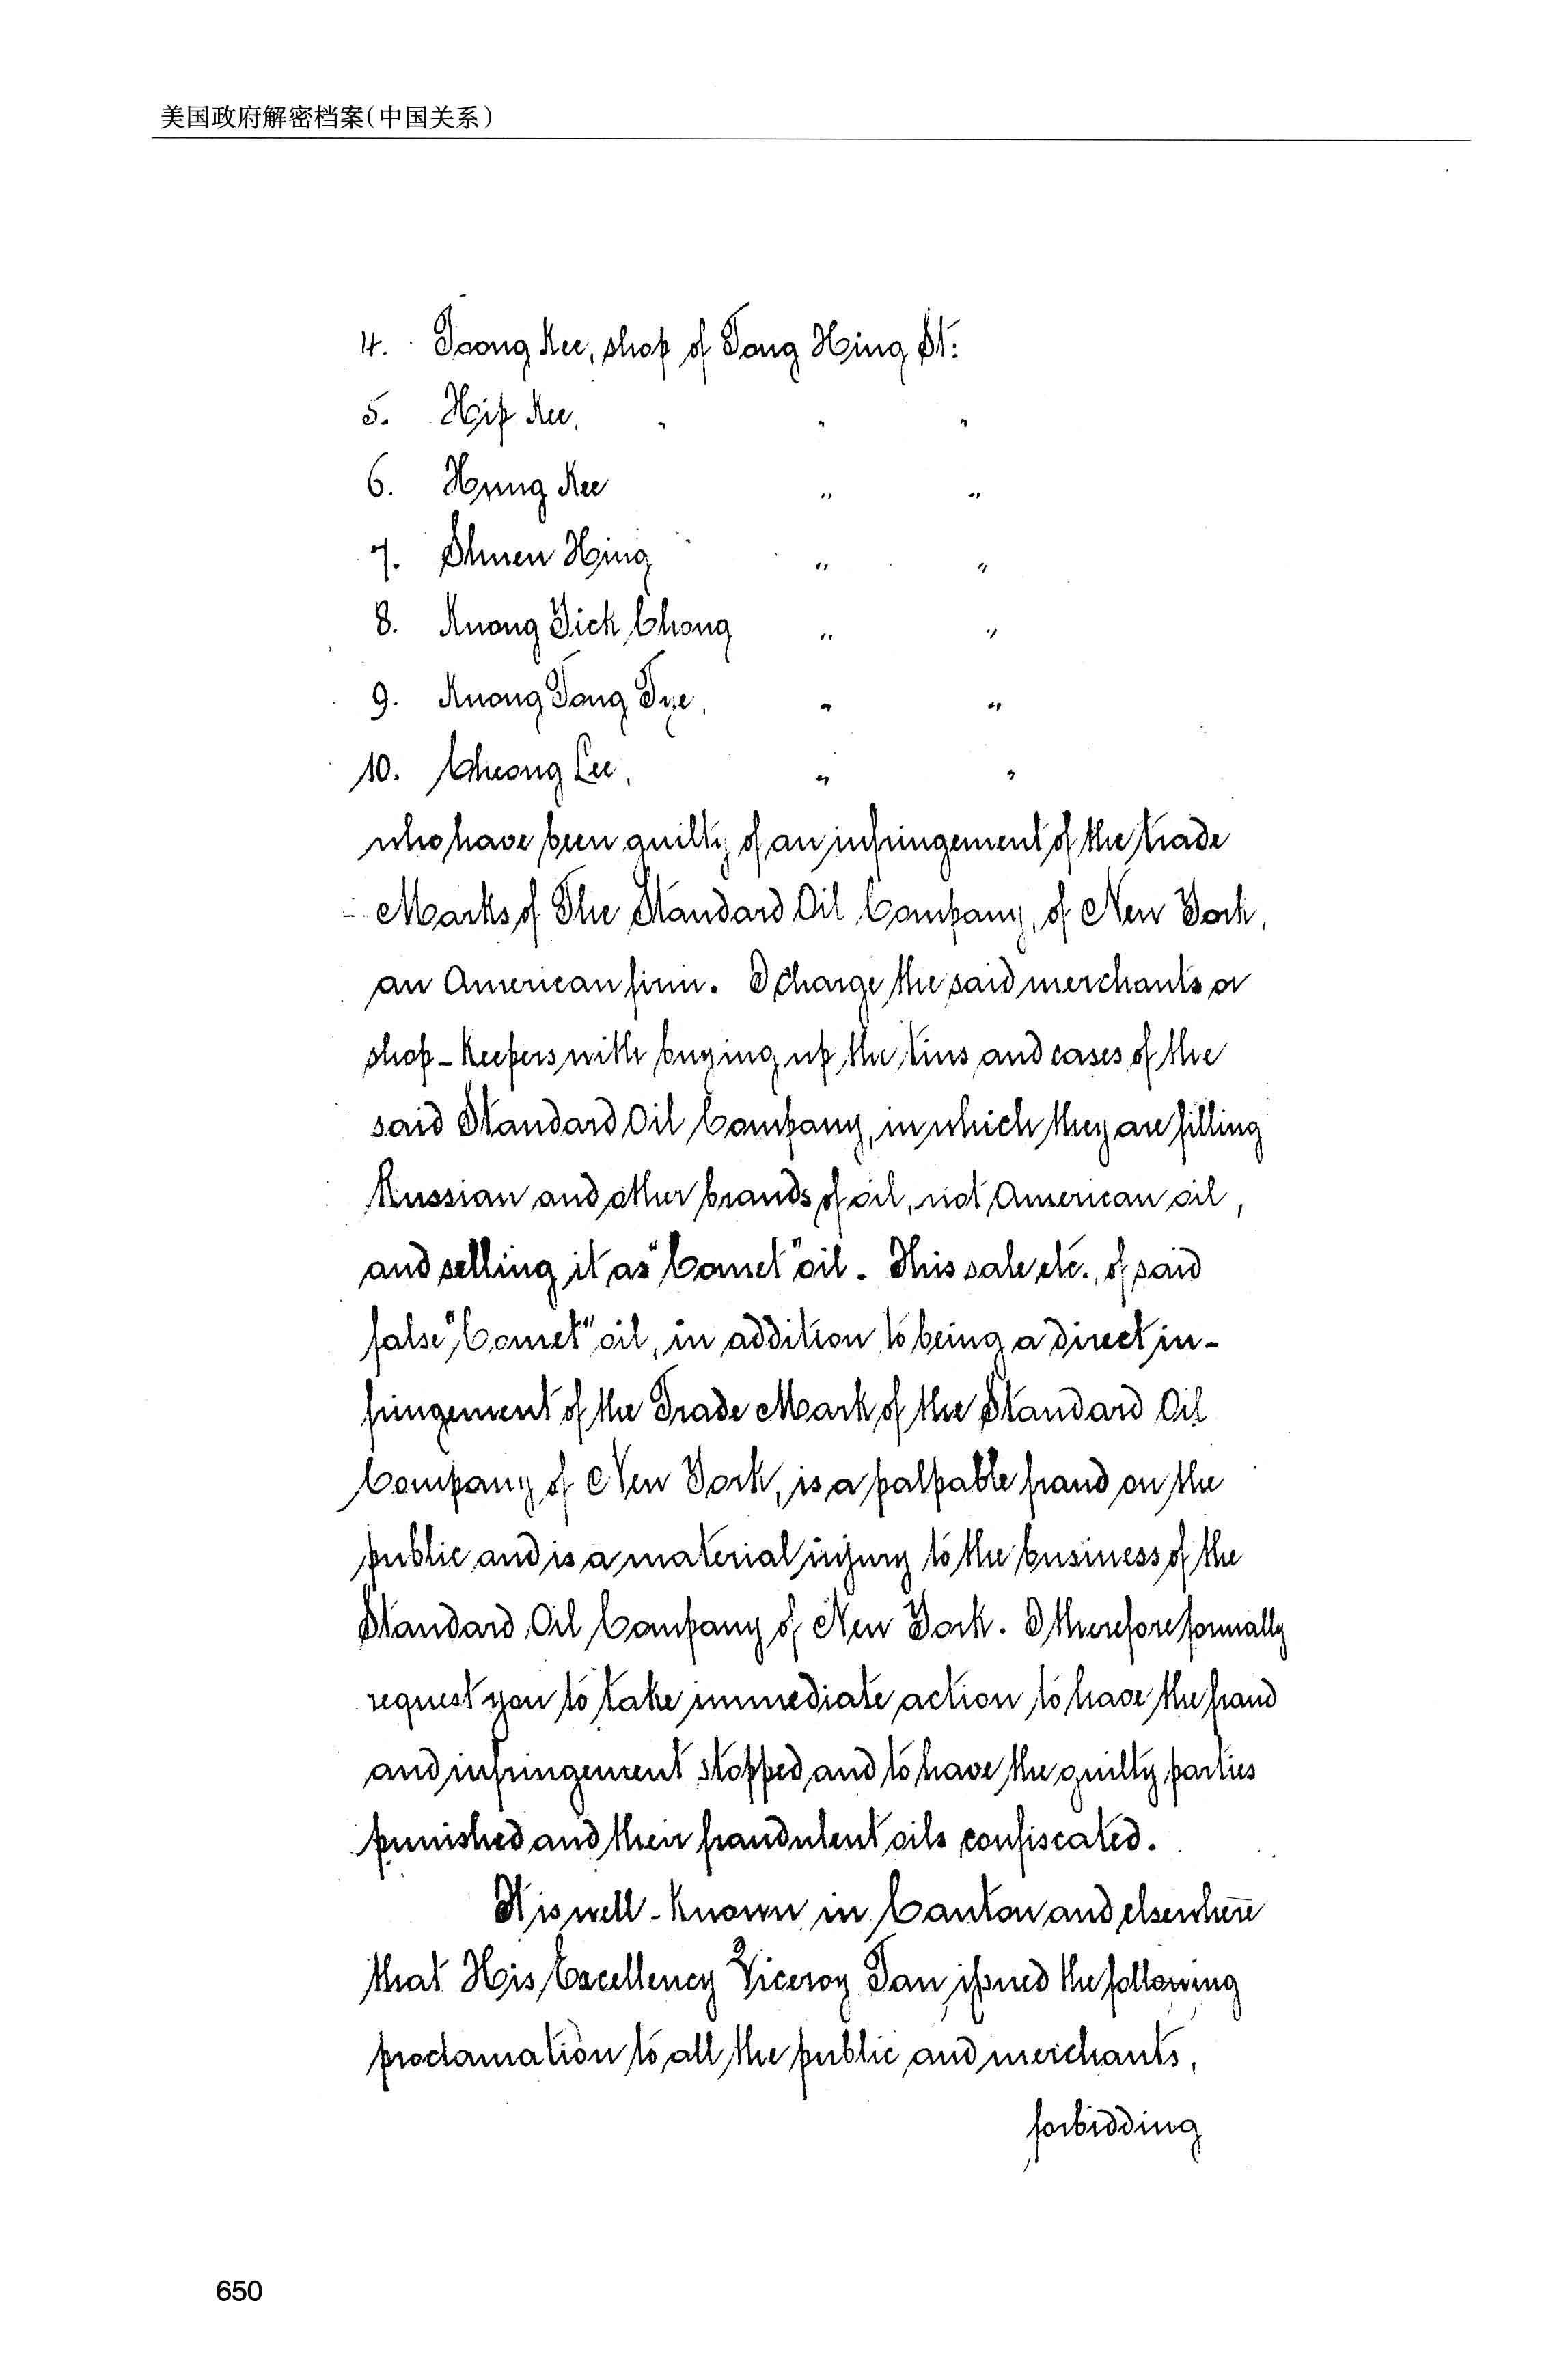 美国政府解密档案(中国关系)
4. Tsong Kee, shop of Tong Hing St:
5. Hip Kee, " " "
6. Hung Kee " "
7. Shuen Hing " "
8. Kuong Tick Chong " "
9. Kuong Tong Tye, " "
10. Cheong Lee, " "
who have been guilty of an infringement of the trade
Marks of The Standard Oil Company, of New York,
an American firm. I charge the said merchants or
shop-keepers with buying up the tins and cases of the
said Standard Oil Company, in which they are filling
Russian and other brands of oil, not American oil,
and selling it as "Comet" oil. This sale etc., of said
false "Comet" oil, in addition to being a direct in-
fringement of the Trade Mark of the Standard Oil
Company of New York, is a palpable fraud on the
public and is a material injury to the business of the
Standard Oil Company of New York. I therefore formally
request you to take immediate action to have the fraud
and infringement stopped and to have the guilty parties
punished and their fraudulent oils confiscated.
It is well-known in Canton and elsewhere
that His Excellency Viceroy Tan issued the following
proclamation to all the public and merchants,
forbidding
650